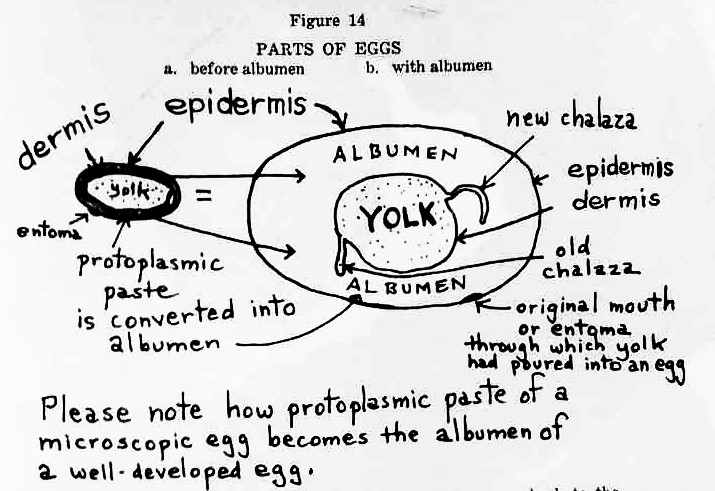 Figure 14
PARTS OF EGGS
a. before albumen b. with albumen
dermis
epidermis
yolk
=
entoma
protoplasmic
paste
is converted into
albumen
ALBUMEN
YOLK
ALBUMEN
new chalaza
epidermis
dermis
old
chalaza
original mouth
or entoma
through which yolk
had poured into an egg
Please note how protoplasmic paste of a
microscopic egg becomes the albumen of
a well-developed egg.